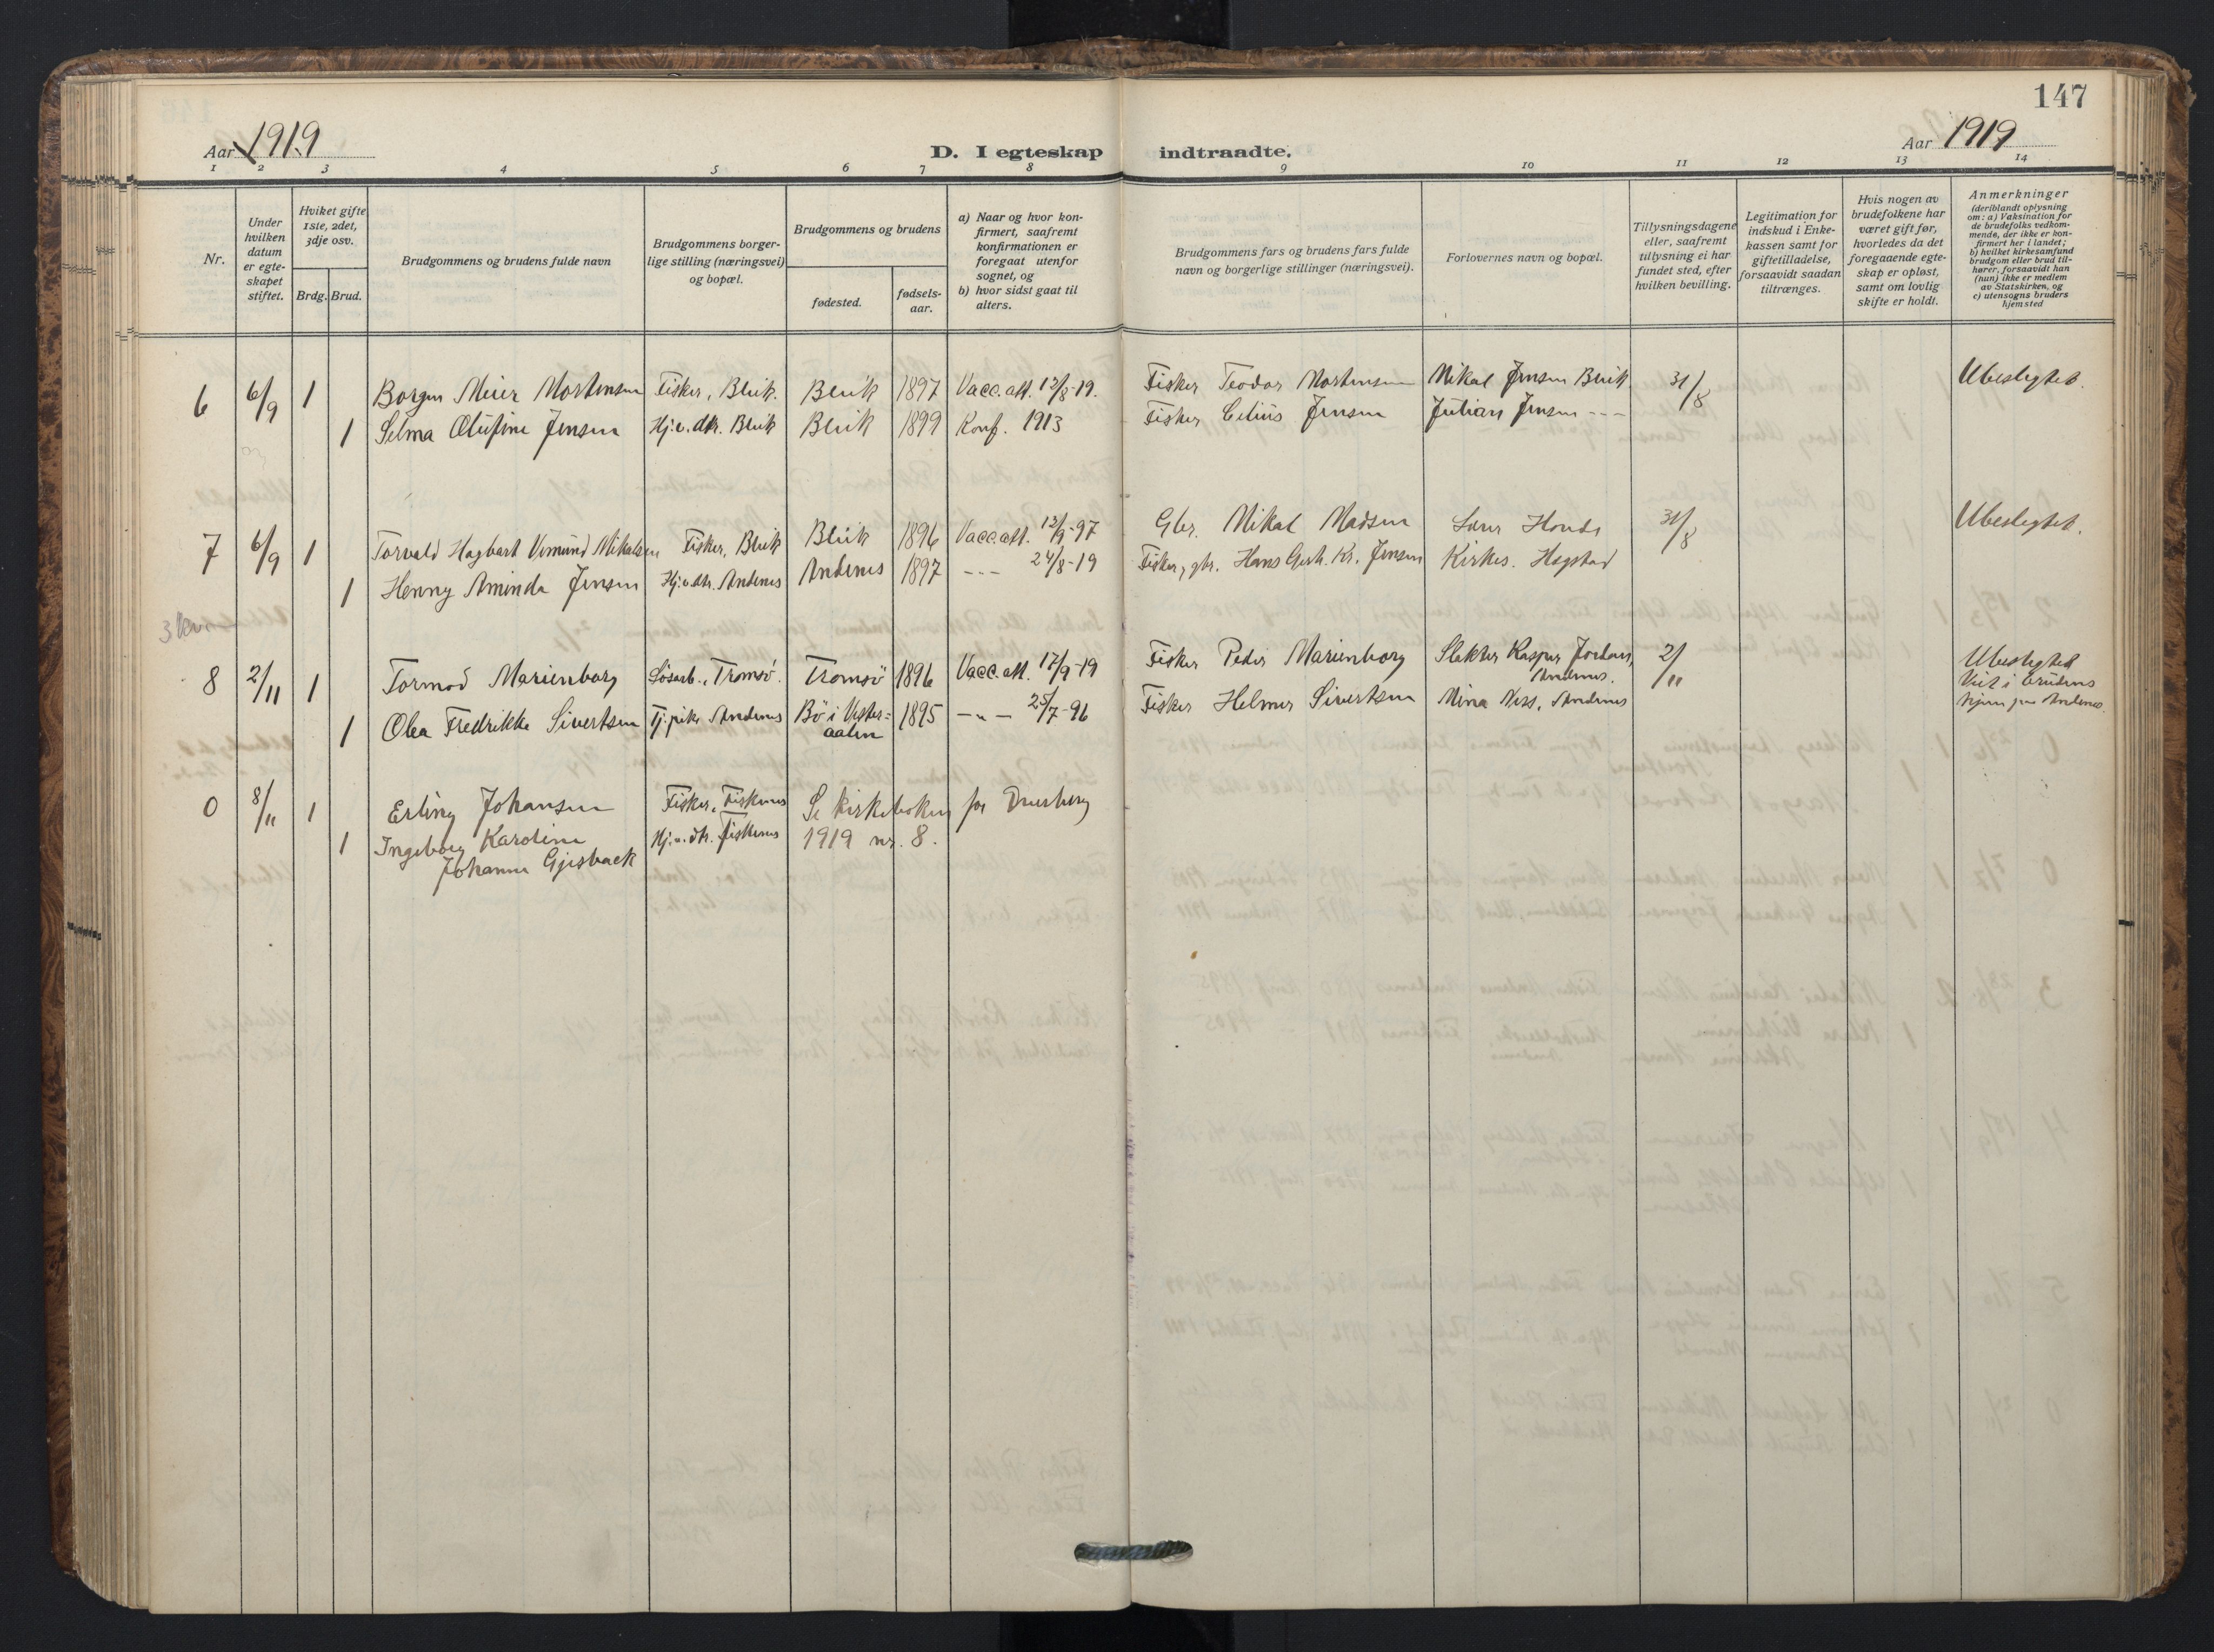 147
Aar 1919
D. I egteskap indtraadte.
Aar 1919
1 2 3 4 5 6 7 8 9 10 11 12 13 14
Nr.
Under hvilken datum er egteskapet stiftet.
Hviket gifte 1ste, 2det, 3dje osv.
Brdg. Brud.
Brudgommens og brudens fulde navn
Brudgommens borgerlige stilling (næringsvei) og bopæl.
Brudgommens og brudens
fødested.
fødselsaar.
a) Naar og hvor konfirmert, saafremt konfirmationen er foregaat utenfor sognet, og
b) hvor sidst gaat til alters.
Brudgommens fars og brudens fars fulde navn og borgerlige stillinger (næringsvei).
Forlovernes navn og bopæl.
Tillysningsdagene eller, saafremt tillysning ei har fundet sted, efter hvilken bevilling.
Legitimation for indskud i Enkekassen samt for giftetilladelse, forsaavidt saadan tiltrænges.
Hvis nogen av brudefolkene har været gift før, hvorledes da det foregaaende egteskap er opløst, samt om lovlig skifte er holdt.
Anmerkninger
(deriblandt oplysning om: a) Vaksination for de brudefolks vedkommende, der ikke er konfirmert her i landet; b) hvilket kirkesamfund brudgom eller brud tilhører, forsaavidt han (hun) ikke er medlem av Statskirken, og c) utensogns bruders hjemsted
6 6/9 1 Borger Meier Mortensen Fisker, Bleik. Bleik 1897 Vacc.att. 12/8-19. Fisker Teodor Mortensen Mikal Jensen Bleik 31/8 Ubeslegtet.
1 Selma Olufine Jensen Hj.v. dtr. Bleik Bleik 1899 Konf. 1913 Fisker Celius Jensen Julian Jensen - - -
7 6/9 1 Torvald Hagbart Vemund Mikalsen Fisker, Bleik Bleik 1896 Vacc.att. 12/9-97 Gbr. Mikal Madsen Lars Honde 31/8 Ubeslegtet.
1 Henny Aminda Jensen Hj.v.dtr. Andenes Andenes 1897 - - - 24/8-19 Fisker, gbr. Hans Gerh. Kr. Jensen Kirkes. Hogstad
8 2/11 1 Tormod Marienborg Løsarb., Tromsö. Tromsö 1896 Vacc.att. 17/9-19 Fisker Peder Marienborg Slakter Kasper Jordan, Andenes. 2/11 Ubeslegtet
Viet i brudens hjem paa Andenes.
1 Olea Fredrikke Sivertsen Tj.pike Andenes Bö i Vesteraalen 1895 - " - 25/7-96 Fisker Helmer Sivertsen Mina Ness, Andenes
0 8/11 1 Erling Johansen Fisker, Fiskenes Se kirkeboken for Dverberg
1 Ingeborg Karoline Johanne Gjesbaek Hj.v. dtr. Fiskenes 1919 nr. 8.